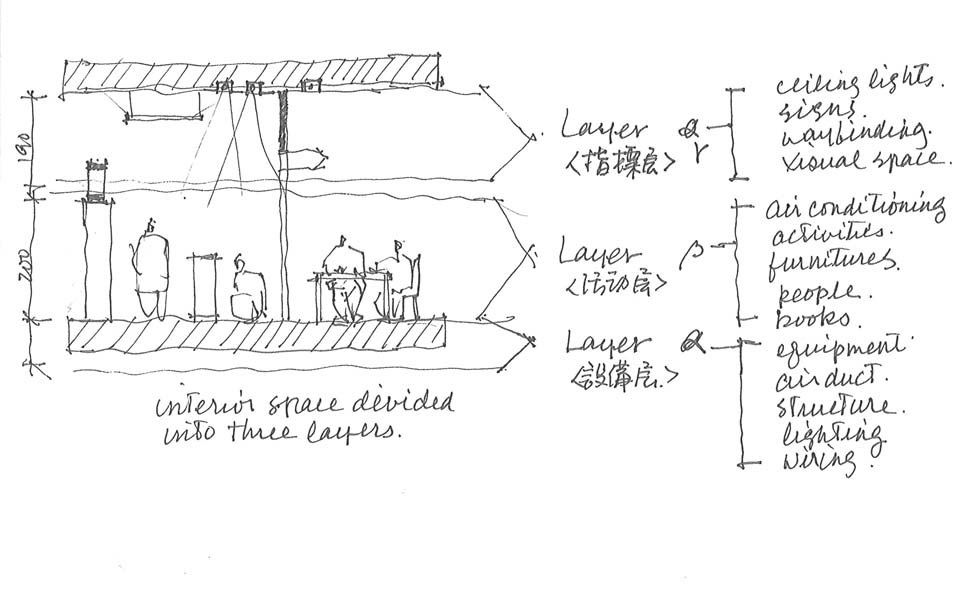 190
200
Layer
<指標层>
α
γ
ceiling lights.
signs.
wayfinding.
visual space.
Layer
<活动层>
β
air conditioning
activities.
furnitures.
people.
books.
Layer
<設備层.>
α
equipment.
air duct.
structure.
lighting
wiring.
interior space divided
into three layers.